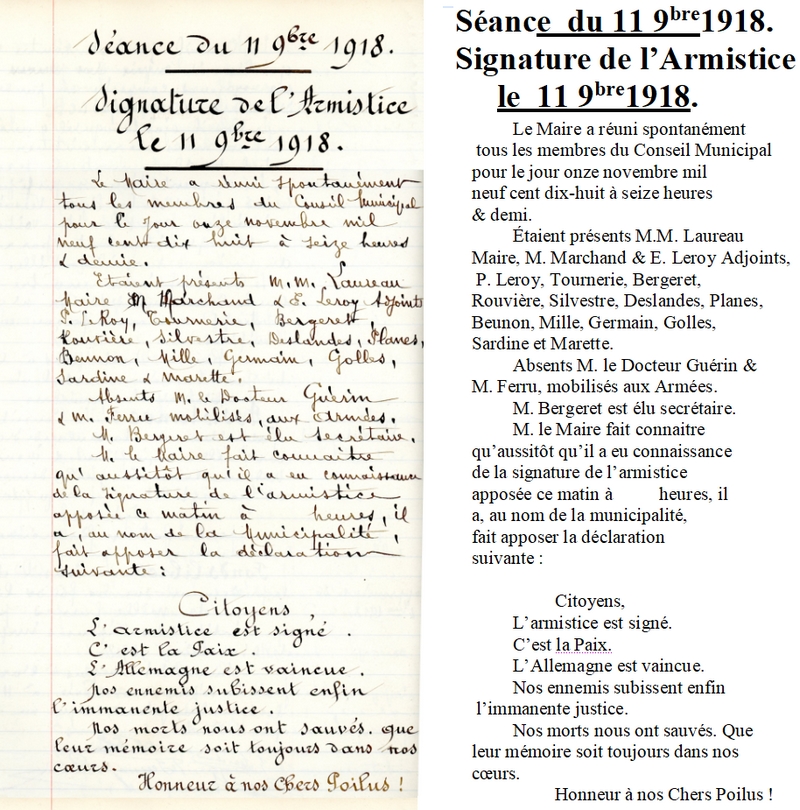 Séance du 11 9bre 1918.
Signature de l'Armistice
le 11 9bre 1918.
Le Maire a réuni spontanément
tous les membres du Conseil Municipal
pour le jour onze novembre mil
neuf cent dix huit à seize heures
& demie.
Etaient présents M.M. Laureau
Maire M Marchand & E. Leroy Adjoints
P. LeRoy, Tournerie, Bergeret,
Rouvière, Silvestre, Deslandes, Planes,
Beunon, Mille, Germain, Golles,
Sardine & Marette.
Absents M. le Docteur Guérin
& M. Ferru mobilisés, aux Armées.
M. Bergeret est élu secrétaire.
M. le Maire fait connaitre
qu'aussitôt qu'il a eu connaissance
de la signature de l'armistice
apposée ce matin à heures, il
a, au nom de la Municipalité,
fait apposer la déclaration
suivante :
Citoyens,
L'armistice est signé.
C'est la Paix.
L'Allemagne est vaincue.
Nos ennemis subissent enfin
l'immanente justice.
Nos morts nous ont sauvés. que
leur mémoire soit toujours dans nos
cœurs.
Honneur à nos Chers Poilus !
Séance du 11 9bre1918.
Signature de l'Armistice
le 11 9bre1918.
Le Maire a réuni spontanément
tous les membres du Conseil Municipal
pour le jour onze novembre mil
neuf cent dix-huit à seize heures
& demi.
Étaient présents M.M. Laureau
Maire, M. Marchand & E. Leroy Adjoints,
P. Leroy, Tournerie, Bergeret,
Rouvière, Silvestre, Deslandes, Planes,
Beunon, Mille, Germain, Golles,
Sardine et Marette.
Absents M. le Docteur Guérin &
M. Ferru, mobilisés aux Armées.
M. Bergeret est élu secrétaire.
M. le Maire fait connaitre
qu'aussitôt qu'il a eu connaissance
de la signature de l'armistice
apposée ce matin à heures, il
a, au nom de la municipalité,
fait apposer la déclaration
suivante :
Citoyens,
L'armistice est signé.
C'est la Paix.
L'Allemagne est vaincue.
Nos ennemis subissent enfin
l'immanente justice.
Nos morts nous ont sauvés. Que
leur mémoire soit toujours dans nos
cœurs.
Honneur à nos Chers Poilus !